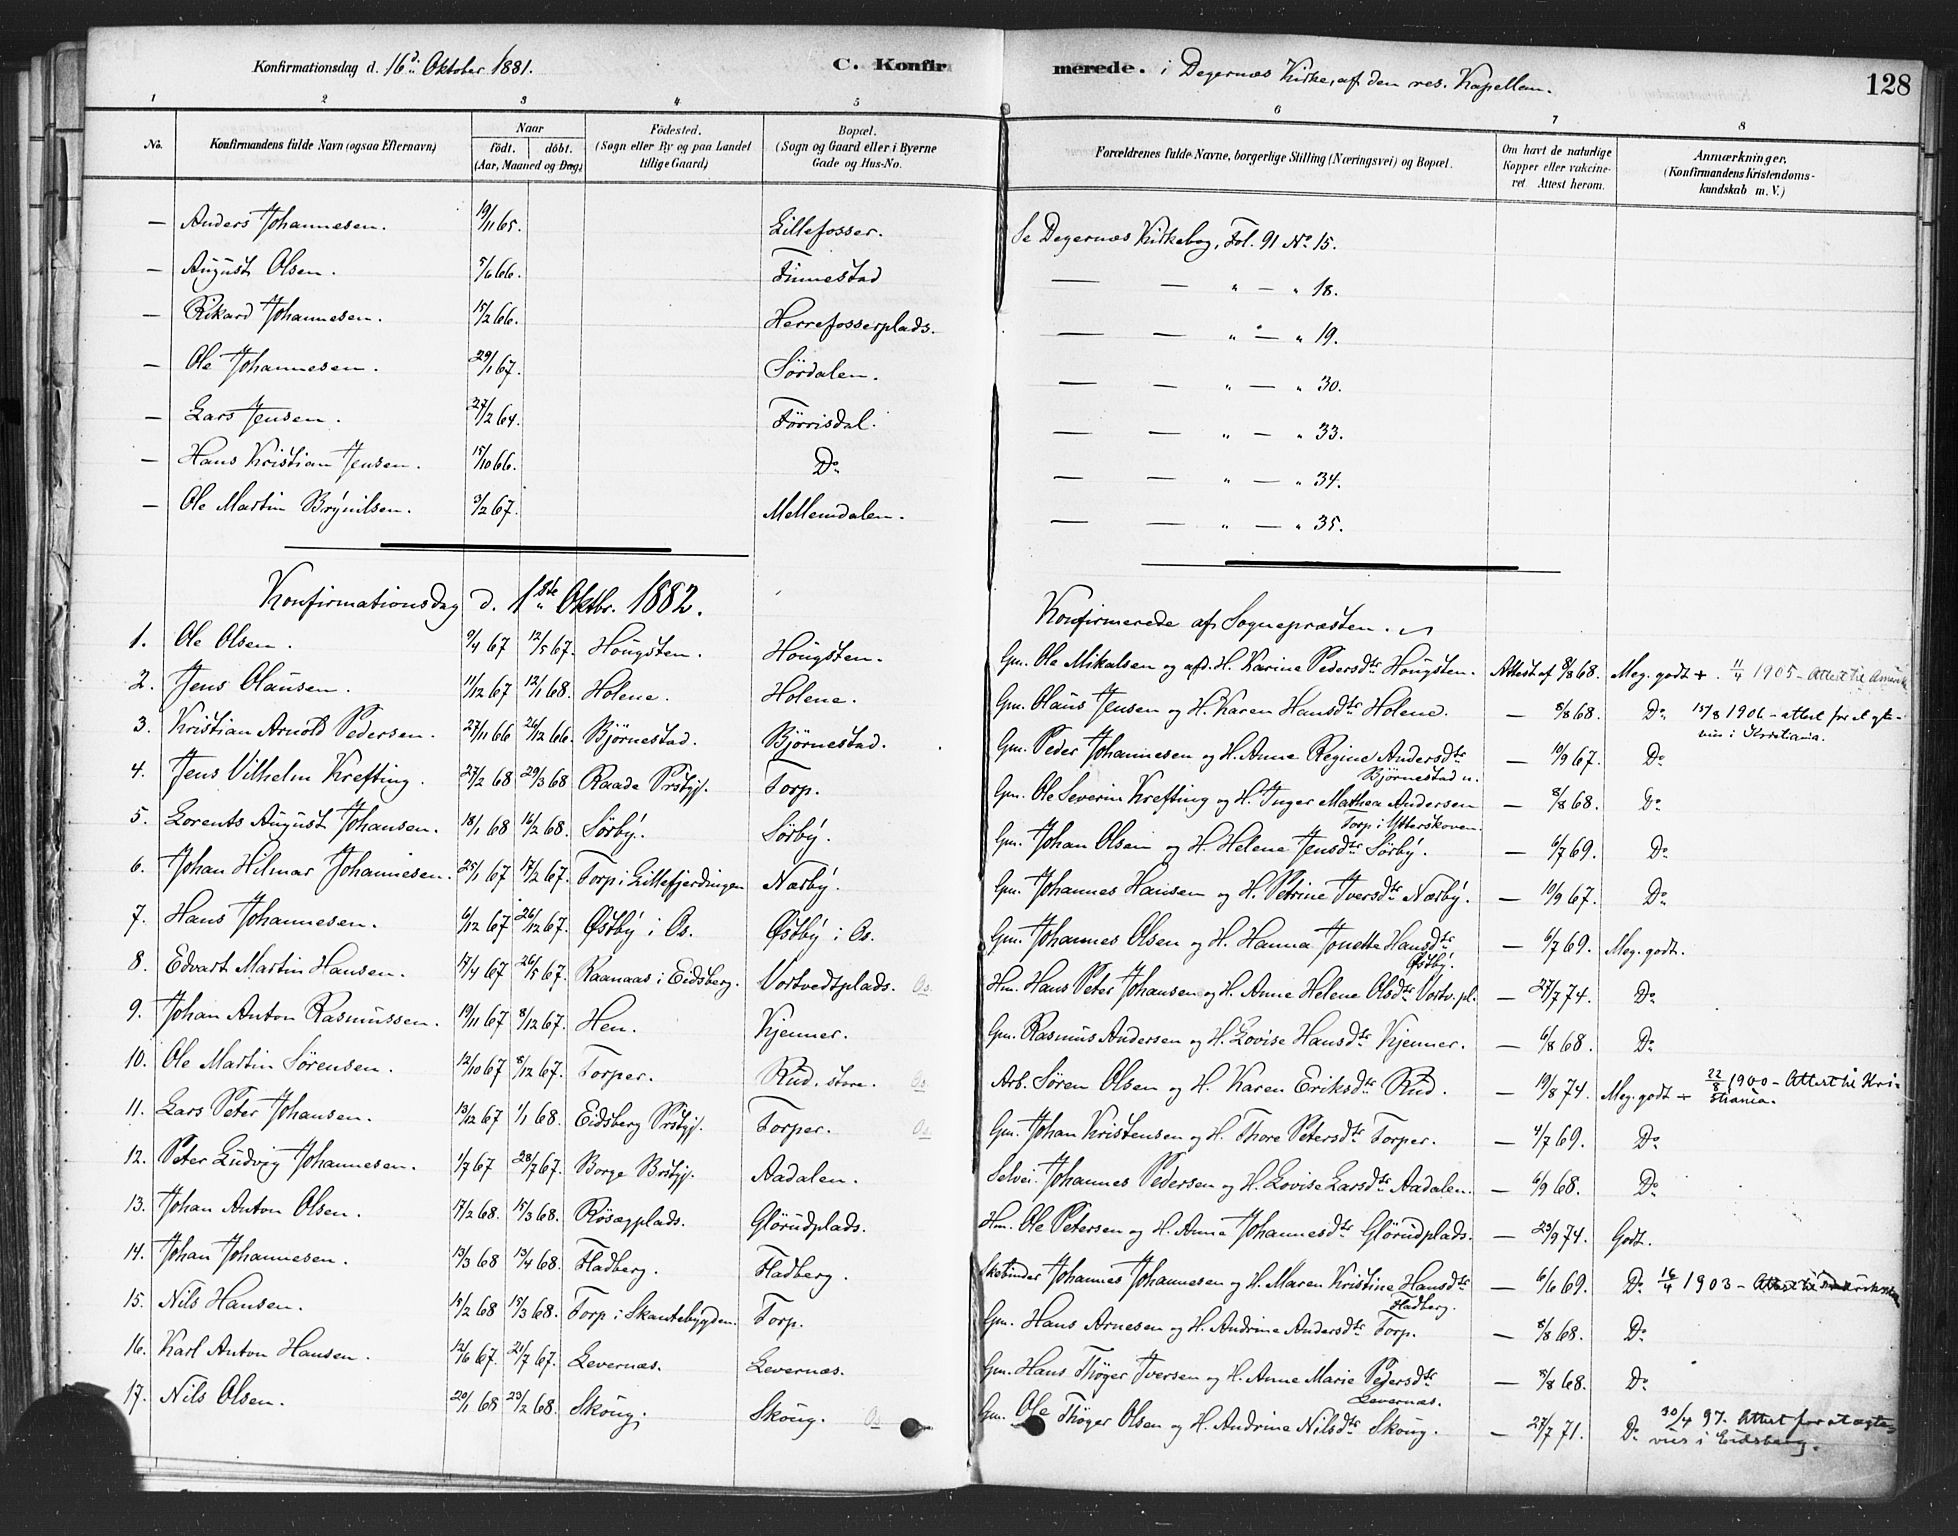 Konfirmationsdag d. 16d. Oktober 1881. C. Konfirmerede. i Degernæs Kirke, af den res. Kapellan. 128
1 2 3 4 5 6 7 8
No. Konfirmandens fulde Navn (ogsaa Efternavn) Naar født. døbt. (Aar, Maaned og Dag) Fødested. (Sogn eller By og paa Landet tillige Gaard) Bopæl. (Sogn og Gaard eller i Byerne Gade og Hus-No. Forældrenes fulde Navne, borgerlige Stilling (Næringsvei) og Bopæl. Om havt de naturlige Kopper eller vakcineret. Attest herom. Anmærkninger. (Konfirmandens Kristendomskundskab m. V.)
— Anders Johannesen. 19/11 65. Lillefosser. Se Degernæs Kirkebog, Fol. 91 No 15.
— August Olsen. 5/6 66. Finnestad — — " — " 18.
— Rikard Johannesen. 15/2 66. Herrefosserplads. — — " — " 19.
— Ole Johannesen. 29/1 67. Sørdalen. — — " — " 30.
— Lars Jensen. 27/2 64. Tørrisdal. — — " — " 33.
— Hans Kristian Jensen. 15/10 66. Do — — " — " 34.
— Ole Martin Brynilsen. 3/2 67. Mellemdalen. — — " — " 35.
Konfirmationsdag d. 1ste Oktbr. 1882. Konfirmerede af Sognepræsten.
1. Ole Olsen. 9/4 67 12/5 67. Høugsten. Høugsten. Gm. Ole Mikalsen og afd. H. Karine Pedersdtr Høugsten. Attest af 8/8 68. Meg. godt +. 11/4 1905 - Attest til Amerika
2. Jens Olausen. 11/12 67 12/1 68. Holene. Holene. Gm. Olaus Jensen og H. Karen Hansdtr Holene. — 8/8 68. Do
3. Kristian Arnold Pedersen. 27/11 66 26/12 66. Bjørnestad. Bjørnestad. Gm. Peder Johannesen og H. Anne Regine Andersdtr Bjørnestad n. — 10/9 67. Do 15/8 1906 - attest for at gte-
vies i Kristiania.
4. Jens Vilhelm Krefting. 27/2 68 29/3 68 Raade Prstgj. Torp. Gm. Ole Severin Krefting og H. Inger Mathea Andersen Torp i Ytterskoven. — 8/8 68. Do
5. Lorents August Johansen. 18/1 68 16/2 68. Sørby. Sørby. Gm. Johan Olsen og H. Helene Jensdtr Sørby. — 6/7 69. Do
6. Johan Hilmar Johannesen. 25/1 67 17/2 67. Torp i Lillefjerdingen Nærby. Gm. Johannes Hansen og H. Petrine Iversdtr Nærby. — 10/9 67. Do
7. Hans Johannesen. 6/12 67 26/12 67. Østby i Os. Østby i Os. Gm. Johannes Olsen og H. Hanna Jonette Hansdtr Østby. — 6/7 69. Meg. godt.
8. Edvart Martin Hansen. 17/4 67 26/5 67. Raanaas i Eidsberg. Vortvedtplads. Os. Hm. Hans Peter Johansen og H. Anne Helene Olsdtr Vortv.pl. — 27/7 74. Do
9. Johan Anton Rasmussen. 19/11 67 8/12 67. Hen. Kjenner. Gm. Rasmus Andersen og H. Lovise Hansdtr Kjenner. — 6/8 68. Do
10. Ole Martin Sørensen. 12/10 67 8/12 67. Torper. Rud, store. Os. Arb. Søren Olsen og H. Karen Eriksdtr Rud. — 19/8 74. Meg. godt + 22/8 1900 - Attest til Kri-
stiania.
11. Lars Peter Johansen. 13/12 67 1/1 68. Eidsberg Prstgj. Torper. Os. Gm. Johan Kristensen og H. Thore Petersdtr Torper. — 4/7 69. Do
12. Peter Ludvig Johannesen. 1/7 67 28/7 67. Borge Prstgj. Aadalen. Selvei. Johannes Pedersen og H. Lovise Larsdtr Aadalen. — 6/9 68. Do
13. Johan Anton Olsen. 17/2 68. 15/3 68. Røsægplads. Glørudplads. Hm. Ole Petersen og H. Anne Johannesdtr Glørudplads. — 23/9 74. Godt.
14. Johan Johannesen. 13/3 68 13/4 68. Fladberg. Fladberg. Johannes Johannesen og H. Maren Kristine Hansdtr Fladberg. — 6/6 69. Do 16/4 1903 - Attest til
15. Nils Hansen. 15/2 68 15/3 68. Torp i Skantebygden. Torp. Gm. Hans Arnesen og H. Andrine Andersdtr Torp. — 8/8 68. Do
16. Karl Anton Hansen. 12/6 67. 21/7 67. Levernæs. Levernæs. Gm. Hans Thøger Iversen og H. Anne Marie Pedersdtr Levernæs. — 8/8 68. Do
17. Nils Olsen. 20/1 68 23/2 68. Skoug. Skoug. Os Gm. Ole Thøger Olsen og H. Andrine Nilsdtr Skoug. — 27/7 71. Do 30/4 97. Attest for at ægte-
vies i Eidsberg.